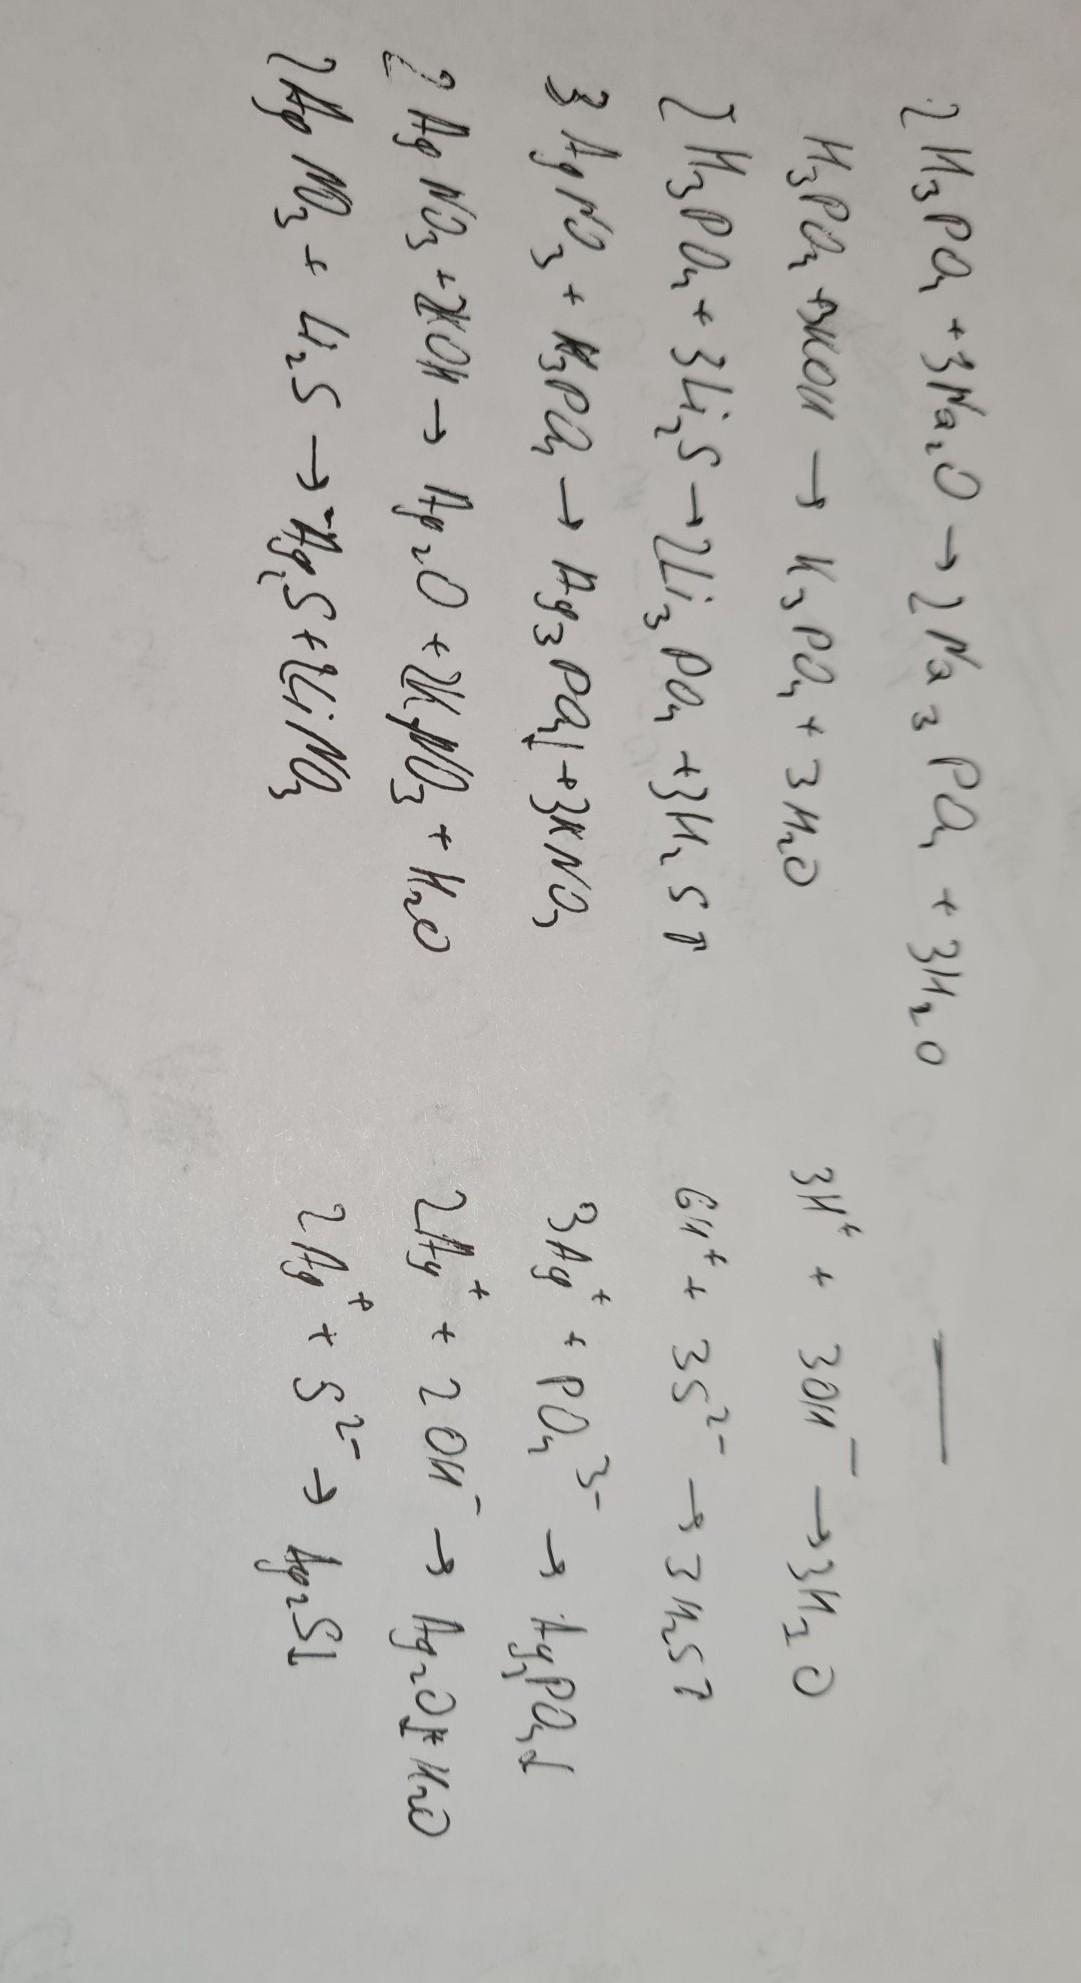 2H₃PO₄ + 3Na₂O → 2Na₃PO₄ + 3H₂O —
H₃PO₄ + 3KOH → K₃PO₄ + 3H₂O 3H⁺ + 3OH⁻ → 3H₂O
2H₃PO₄ + 3Li₂S → 2Li₃PO₄ + 3H₂S↑ 6H⁺ + 3S²⁻ → 3H₂S↑
3AgNO₃ + K₃PO₄ → Ag₃PO₄↓ + 3KNO₃ 3Ag⁺ + PO₄³⁻ → Ag₃PO₄↓
2AgNO₃ + 2KOH → Ag₂O + 2KNO₃ + H₂O 2Ag⁺ + 2OH⁻ → Ag₂O↓ + H₂O
2AgNO₃ + Li₂S → Ag₂S + 2LiNO₃ 2Ag⁺ + S²⁻ → Ag₂S↓